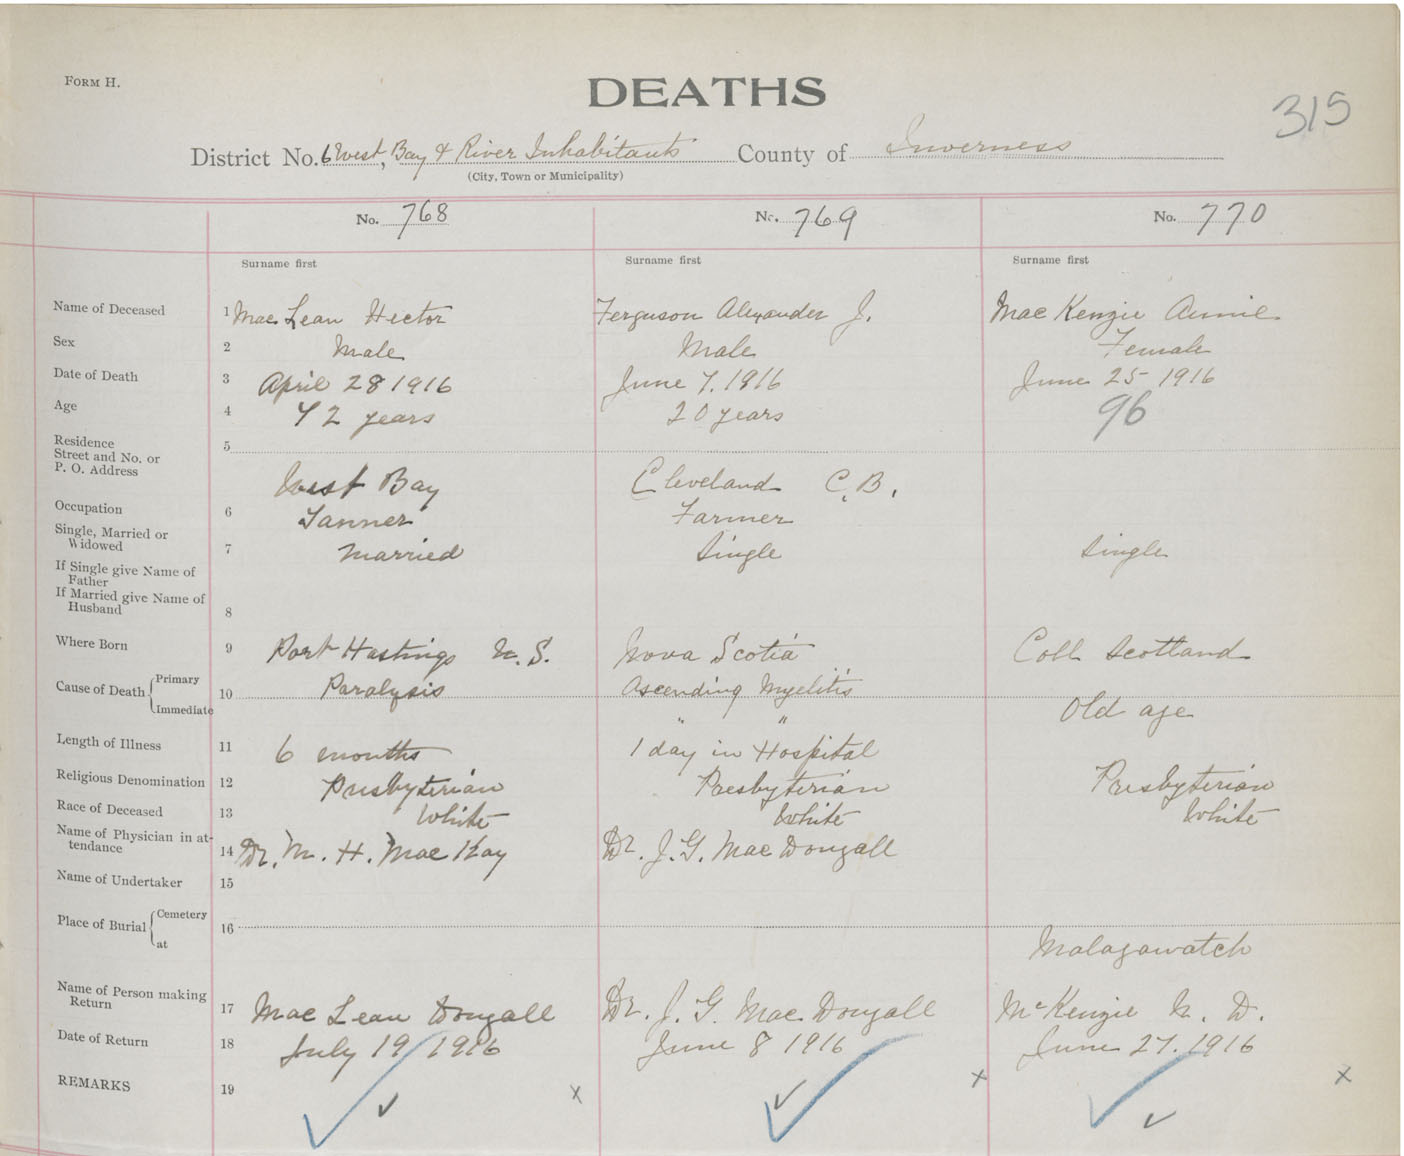 FORM H.
DEATHS
315
District No. 6 West, Bay & River Inhabitants County of Inverness
(City, Town or Municipality)
No. 768 No. 769 No. 770
Surname first Surname first Surname first
Name of Deceased 1 Mac Lean Hector Ferguson Alexander J. Mac Kenzie Annie
Sex 2 Male Male Female
Date of Death 3 April 28 1916 June 7. 1916 June 25 1916
Age 4 72 years 20 years 96
Residence 5
Street and No. or
P. O. Address West Bay Cleveland C.B.
Occupation 6 Tanner Farmer
Single, Married or
Widowed 7 Married Single Single
If Single give Name of
Father
If Married give Name of
Husband 8
Where Born 9 Port Hastings N.S. Nova Scotia Coll Scotland
Cause of Death Primary 10 Paralysis Ascending Myelitis
Immediate " " Old age
Length of Illness 11 6 months 1 day in Hospital
Religious Denomination 12 Presbyterian Presbyterian Presbyterian
Race of Deceased 13 White White White
Name of Physician in at-
tendance 14 Dr. M. H. MacKay Dr. J. G. Mac Dougall
Name of Undertaker 15
Place of Burial Cemetery 16
at Malagawatch
Name of Person making
Return 17 Mac Lean Dougall Dr. J. G. Mac Dougall McKenzie N. D.
Date of Return 18 July 19 1916 June 8 1916 June 27. 1916
REMARKS 19 x x x